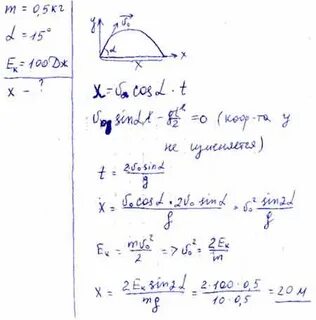 m = 0,5кг
α = 15°
Eк = 100Дж
x - ?
y
v₀
α
x
x
x = v₀ cosα · t
v₀ sinα t - gt²/2 = 0 (коор-та y
не изменяется)
t = 2v₀ sinα / g
x = v₀ cosα · 2v₀ sinα / g = v₀² sin2α / g
Eк = mv₀² / 2 => v₀² = 2Eк / m
x = 2Eк sin2α / mg = 2·100·0,5 / 10·0,5 = 20 м